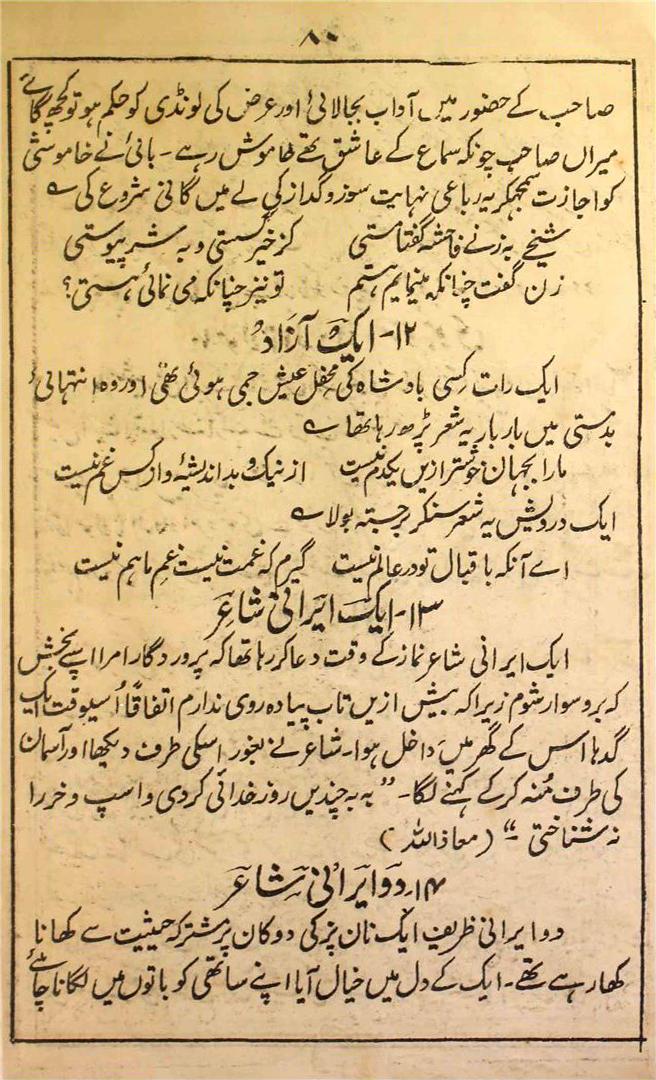 ۸۰
صاحب کے حضور میں آداب بجا لائی اور عرض کی لونڈی کو حکم ہو تو کچھ گائے
میراں صاحب چونکہ سماع کے عاشق تھے خاموش رہے۔ بائی نے خاموشی
کو اجازت سمجھکر یہ رباعی نہایت سوز و گداز کی لے میں گانی شروع کی ؎
شیخے بہ زنے فاحشہ گفتا مستی کز خیر گسستی و بہ شر پیوستی
زن گفت چنانکہ مینمایم ہستم تو نیز چنانکہ می نمائی ہستی؟
۱۲۔ ایک آزاد
ایک رات کسی بادشاہ کی محفل عیش جمی ہوئی تھی اور وہ انتہائی
بدمستی میں بار بار یہ شعر پڑھ رہا تھا ؎
مارا بجہاں خوشتر ازیں یکدم نیست از نیک و بد اندیشہ و از کس غم نیست
ایک درویش یہ شعر سنکر برجستہ بولا ؎
اے آنکہ باقبال تو در عالم نیست گیرم کہ غمت نیست غم ما ہم نیست
۱۳۔ ایک ایرانی شاعر
ایک ایرانی شاعر نماز کے وقت دعا کر رہا تھا کہ پروردگارا مرا اسپے بخش
کہ برو سوار شوم زیرا کہ بیش ازیں تاب پیادہ روی ندارم اتفاقاً اسیوقت ایک
گدہا اس کے گھر میں داخل ہوا۔ شاعر نے بغور اسکی طرف دیکھا اور آسمان
کی طرف منہ کر کے کہنے لگا۔ ”بہ بہ چندیں روز خدائی کردی و اسپ و خر را
نہ شناختی۔“ (معاذ اللہ)
۱۴۔ دو ایرانی شاعر
دو ایرانی ظریف ایک نان پز کی دوکان پر مشترکہ حیثیت سے کھانا
کھا رہے تھے۔ ایک کے دل میں خیال آیا اپنے ساتھی کو باتوں میں لگانا چاہئے